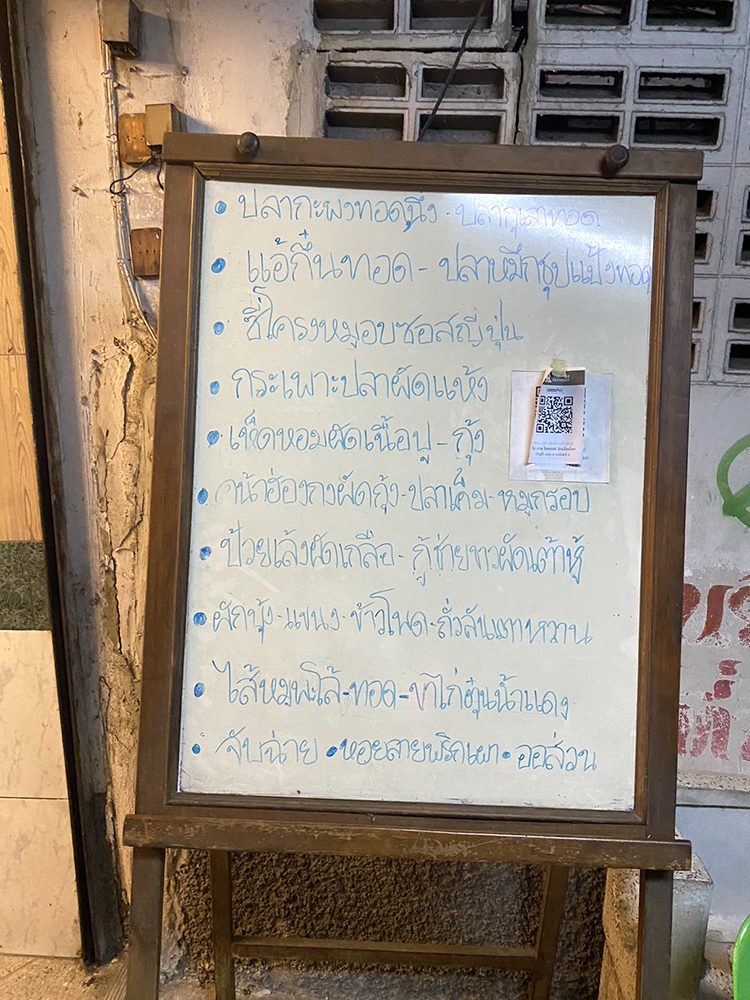 • ปลากะพงทอด,นึ่ง - ปลากุเลาทอด
• แฮ้กึ๊นทอด - ปลาหมึกชุบแป้งทอด
• ซี่โครงหมูอบซอสญี่ปุ่น
• กระเพาะปลาผัดแห้ง
• เห็ดหอมผัดเนื้อปู - กุ้ง
• คน้าฮ่องกงผัดกุ้ง - ปลาเค็ม - หมูกรอบ
• ป๋วยเล้งผัดเกลือ - กู้ช่ายขาวผัดเต้าหู้
• ผักบุ้ง - แขนง - ข้าวโพด - ถั่วลันเตาหวาน
• ไส้หมูพะโล้ - ทอด - ขาไก่ตุ๋นน้ำแดง
• จับฉ่าย • หอยลายพริกเผา • ออส่วน